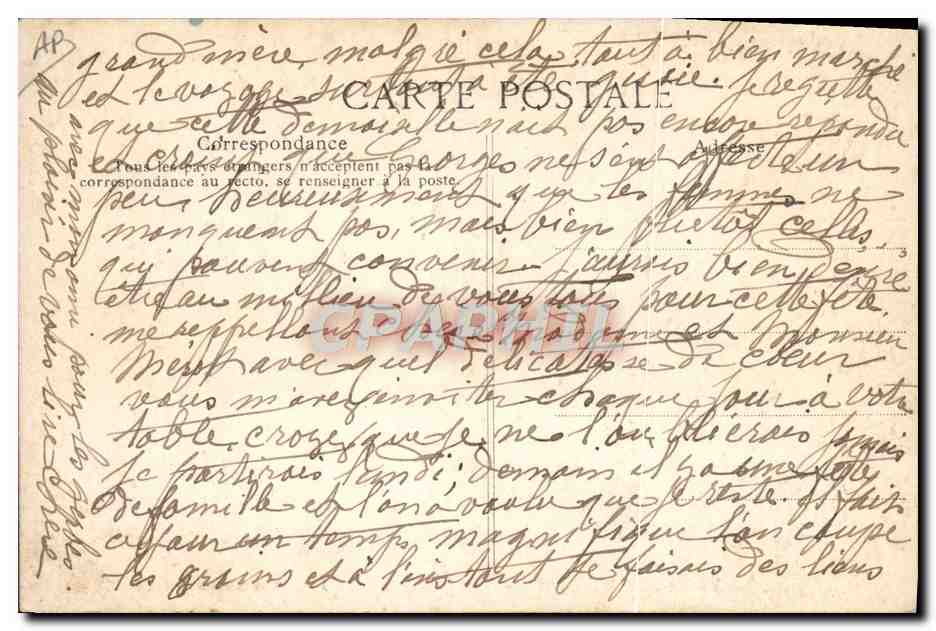 AP
grand mère, malgré cela tout à bien marché
et le voyage surtout a été gaie. Je regrette
CARTE POSTALE
que cette demoiselle nait pas encore répondu
Correspondance
Adresse
Georges ne un
Tous les pays étrangers n'acceptent pas la
correspondance au recto, se renseigner à la poste.
peu, heureusement que les femmes ne
manquent pas, mais bien plutôt celles
qui peuvent convenir. J'aurais bien désiré
être au millieu de vous tous pour cette fête
me rappellant chère Madame et Monsieur
avec quel délicatesse du coeur
vous m'avez inviter chaque jour à votre
table, croyez que je ne l'oublierais jamais
Je partirais lundi; demain il y a une fête
de famille et l'on a voulu que je reste. Il fait
ce jour un temps magnifique l'on coupe
les grains et à l'instant je faisais des liens
avec mon nom sous les gerbes.
au plaisir de vous lire Irène
CPAPHIL